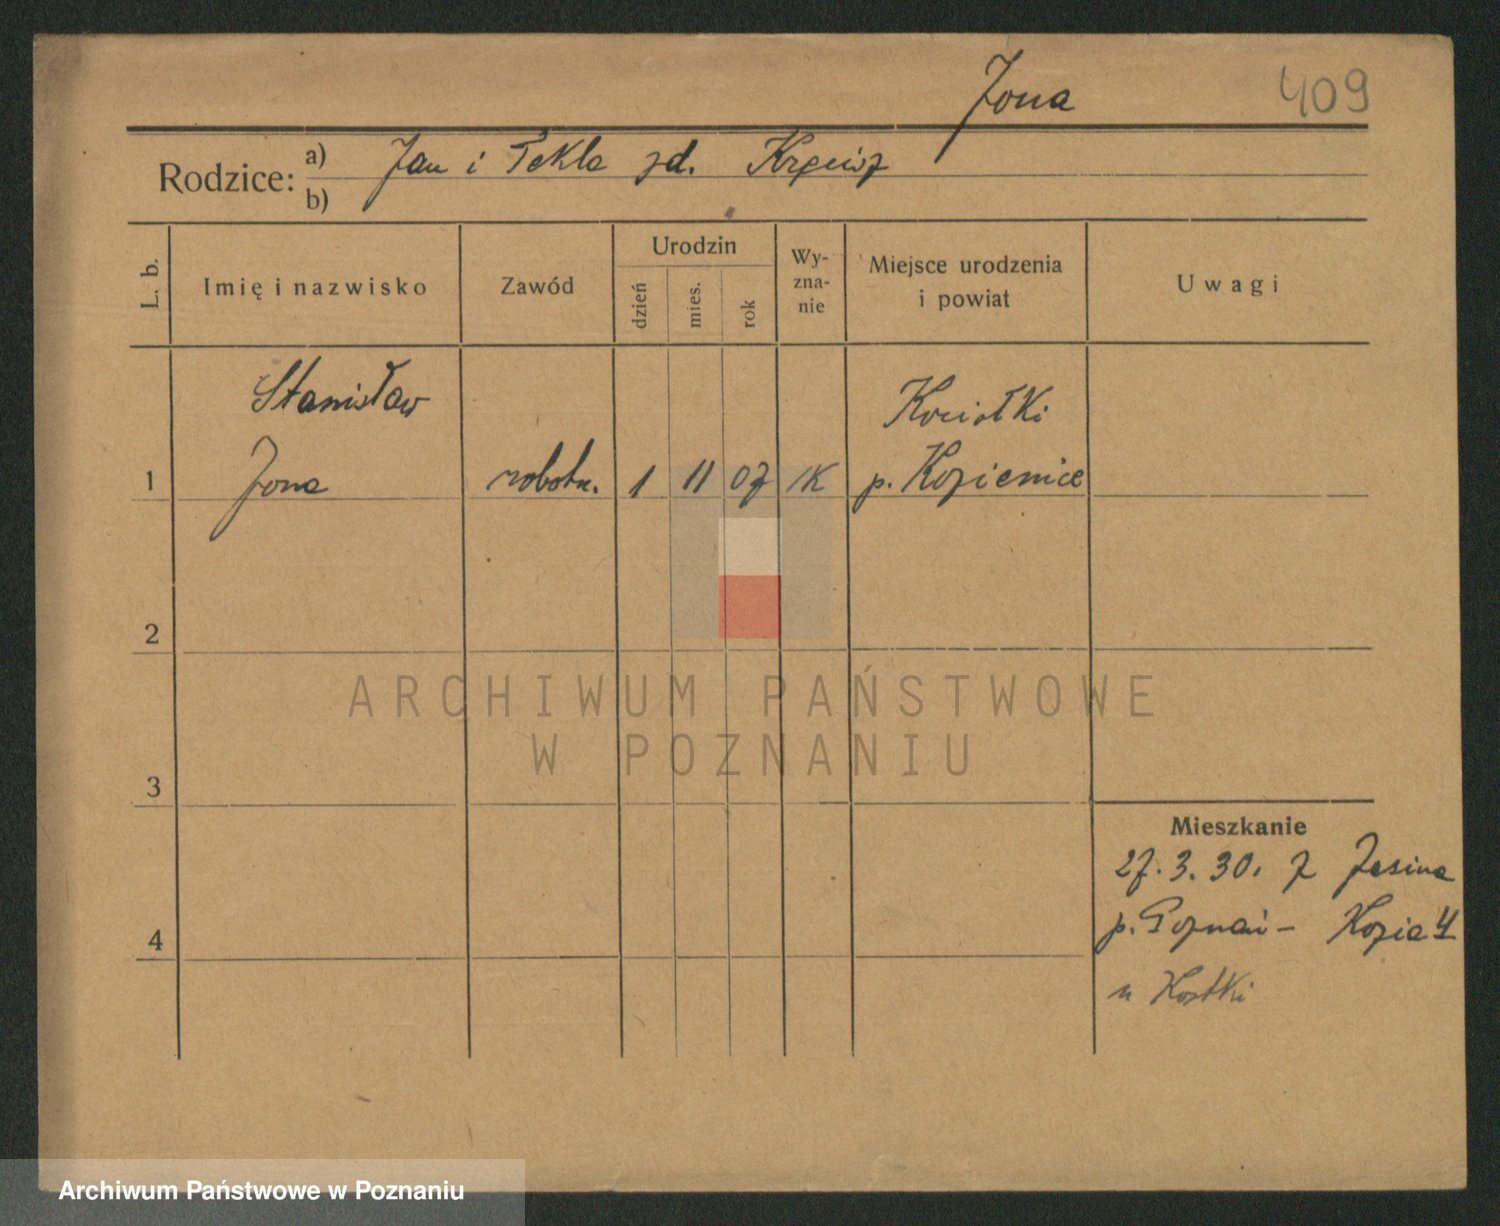 Jona 409
Rodzice: a) Jan i Tekla zd.
b)
L. b. Imię i nazwisko Zawód Urodzin dzień mies. rok Wy-zna-nie Miejsce urodzenia i powiat Uwagi
Stanisław Kociołki
1 Jona robotn. 1 11 07 rK p. Kozienice
2
ARCHIWUM PAŃSTWOWE
W POZNANIU
3
Mieszkanie
27.3.30. z Jasina
4 p. Poznań - Kozia 4
u Kostki
Archiwum Państwowe w Poznaniu